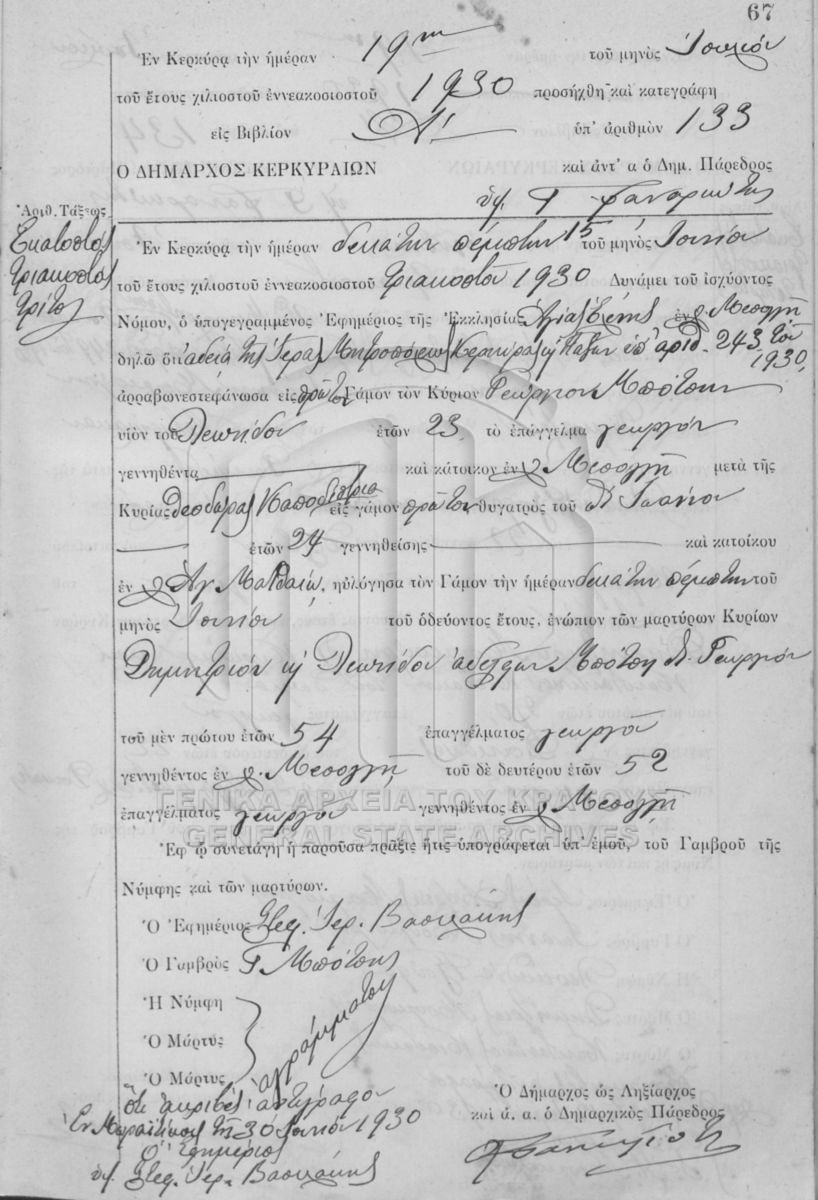 67
Ἐν Κερκύρᾳ τὴν ἡμέραν 19ην τοῦ μηνὸς Ἰουλίου
τοῦ ἔτους χιλιοστοῦ ἐννεακοσιοστοῦ 1930 προσήχθη καὶ κατεγράφη
εἰς Βιβλίον Α' ὑπ' ἀριθμὸν 133
Ο ΔΗΜΑΡΧΟΣ ΚΕΡΚΥΡΑΙΩΝ καὶ ἀντ' α ὁ Δημ. Πάρεδρος
Ἀριθ. Τάξεως
Ἑκατοστὸς
τριακοστὸς
τρίτος
Ἐν Κερκύρᾳ τὴν ἡμέραν δεκάτην πέμπτην 15 τοῦ μηνὸς Ἰουνίου
τοῦ ἔτους χιλιοστοῦ ἐννεακοσιοστοῦ τριακοστοῦ 1930 Δυνάμει τοῦ ἰσχύοντος
Νόμου, ὁ ὑπογεγραμμένος Ἐφημέριος τῆς Ἐκκλησίας Ἁγίας Ἑλένης ἐν χ. Μεσογγῇ
δηλῶ ὅτι ἀδείᾳ τῆς Ἱερᾶς Μητροπόλεως Κερκύρας ϗ Παξῶν ὑπ' ἀριθ. 243 τοῦ
1930,
ἀρραβωνεστεφάνωσα εἰς πρῶτον Γάμον τὸν Κύριον Γεώργιον Μπότσην
υἱὸν τοῦ Λεωνίδου ἐτῶν 23 τὸ ἐπάγγελμα γεωργὸν
γεννηθέντα καὶ κάτοικον ἐν χ. Μεσογγῇ μετὰ τῆς
Κυρίας Θεοδώρας Καποδίστρια εἰς γάμον πρῶτον θυγατρὸς τοῦ Ἰωάννου
ἐτῶν 24 γεννηθείσης καὶ κατοίκου
ἐν χ. Ἁγ. Ματθαίῳ, ηὐλόγησα τὸν Γάμον τὴν ἡμέραν δεκάτην πέμπτην τοῦ
μηνὸς Ἰουνίου τοῦ ὁδεύοντος ἔτους, ἐνώπιον τῶν μαρτύρων Κυρίων
Δημητρίου ϗ Λεωνίδου ἀδελφῶν Μπότση Γεωργίου
τοῦ μὲν πρώτου ἐτῶν 54 ἐπαγγέλματος γεωργοῦ
γεννηθέντος ἐν χ. Μεσογγῇ τοῦ δὲ δευτέρου ἐτῶν 52
ΓΕΝΙΚΑ ΑΡΧΕΙΑ ΤΟΥ ΚΡΑΤΟΥΣ
ἐπαγγέλματος γεωργοῦ γεννηθέντος ἐν χ. Μεσογγῇ
GENERAL STATE ARCHIVES
Ἐφ' ᾧ συνετάγη ἡ παροῦσα πρᾶξις ἥτις ὑπογράφεται ὑπ' ἐμοῦ, τοῦ Γαμβροῦ τῆς
Νύμφης καὶ τῶν μαρτύρων.
Ὁ Ἐφημέριος Στεφ. Ἱερ. Βασιλάκης
Ὁ Γαμβρὸς Γ Μπότσης
Ἡ Νύμφη
Ὁ Μάρτυς ἀγράμματοι
Ὁ Μάρτυς
Ὅτι ἀκριβὲς ἀντίγραφον
τῇ 30 Ἰουνίου 1930
Ὁ Ἐφημέριος
ὑφ. Στεφ. Ἱερ. Βασιλάκης
Ὁ Δήμαρχος ὡς Ληξίαρχος
καὶ ἀ. α. ὁ Δημαρχικὸς Πάρεδρος